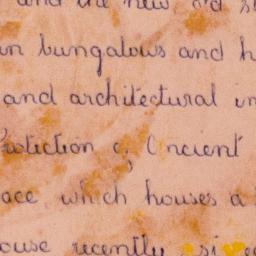 and the new old s
in bungalows and h
and architectural in
Protection of Ancient
ace which houses a
ouse recently si